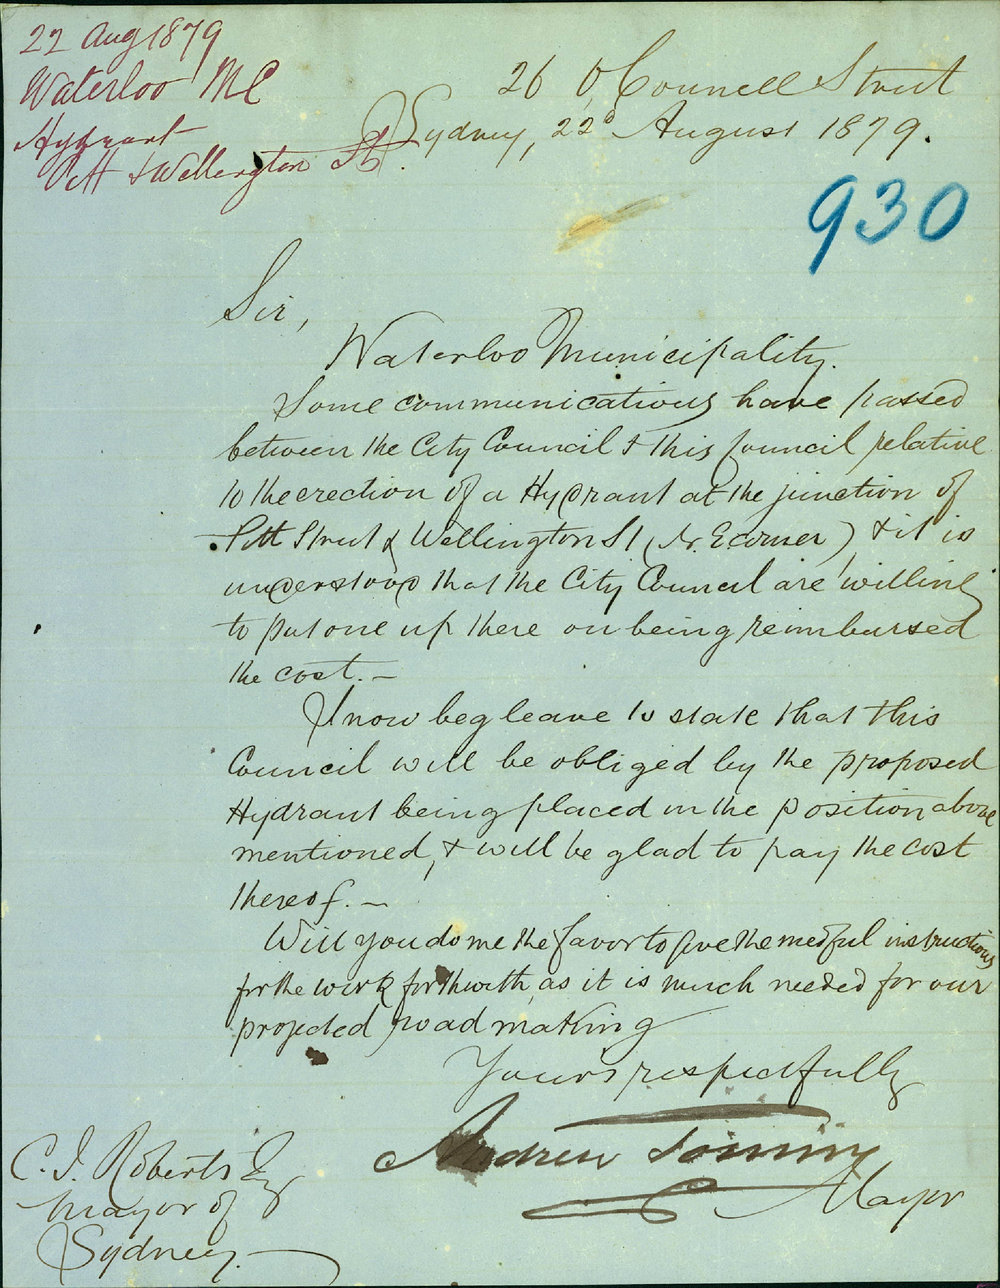 22 Aug 1879
Waterloo MC
Hydrant
Pitt & Wellington St.
26 O'Connell Street
Sydney, 22d August 1879.
930
Sir,
Waterloo Municipality.
Some communications have passed
between the City Council & this Council relative
to the erection of a Hydrant at the junction of
Pitt Street & Wellington St (N. E corner), & it is
understood that the City Council are willing
to put one up there on being reimbursed
the cost. —
I now beg leave to state that this
Council will be obliged by the proposed
Hydrant being placed in the position above
mentioned, & will be glad to pay the cost
thereof. —
Will you do me the favor to give the needful instructions
for the work forthwith, as it is much needed for our
projected road making
Yours respectfully
Andrew Torning
Mayor
C. J. Roberts Esq
Mayor of
Sydney. —